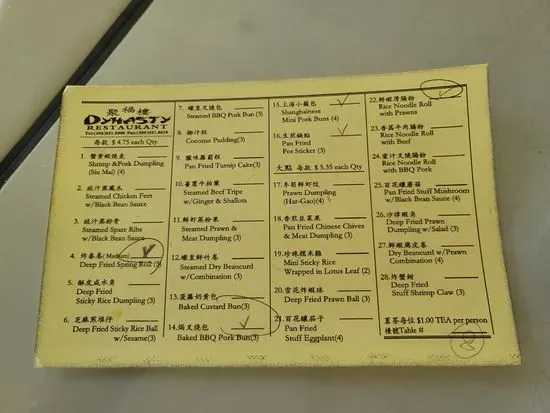 聚福樓
DYNASTY
RESTAURANT
每款 $ 4.75 each Qty.
1. 蟹黃蝦燒賣
Shrimp &Pork Dumpling
(Siu Mai) (4)
2. 豉汁蒸鳳爪
Steamed Chicken Feet
w/Black Bean Sauce
3. 豉汁蒸排骨
Steamed Spare Ribs
w/Black Bean Sauce
4. 炸春卷( Medium)
Deep Fried Spring Roll (3)
5. 酥皮咸水角
Deep Fried
Sticky Rice Dumpling (3)
6. 芝麻煎堆仔
Deep Fried Sticky Rice Ball
w/Sesame(3)
7. 蠔皇叉燒包
Steamed BBQ Pork Bun (3)
8. 椰汁糕
Coconut Pudding(3)
9. 臘味蘿蔔糕
Pan Fried Turnip Cake(3)
10. 薑蔥牛柏葉
Steamed Beef Tripe
w/Ginger & Shallots
11. 鮮蝦蒸粉果
Steamed Prawn &
Meat Dumpling (3)
12. 蠔皇鮮竹卷
Steamed Dry Beancurd
w/Combination (3)
13. 菠蘿奶黄包
Baked Custard Bun(3)
14. 焗叉燒包
Baked BBQ Pork Bun(3)
15. 上海小籠包
Shanghainese
Mini Pork Buns (4)
16. 生煎鍋貼
Pan Fried
Pot Sticker (3)
大點 每款 $ 5.35 each Qty.
17. 冬筍鮮蝦餃
Prawn Dumpling
(Har-Gao)(4)
18. 香煎韭菜果
Pan Fried Chinese Chives
& Meat Dumpling (3)
19. 珍珠糯米雞
Mini Sticky Rice
Wrapped in Lotus Leaf (2)
20. 雪花炸蝦球
Deep Fried Prawn Ball (3)
21. 百花釀茄子
Pan Fried
Stuff Eggplant(4)
22. 鮮蝦滑腸粉
Rice Noodle Roll
with Prawns
23. 香茜牛肉腸粉
Rice Noodle Roll
with Beef
24. 蜜汁叉燒腸粉
Rice Noodle Roll
with BBQ Pork
25. 百花釀蘑菇
Pan Fried Stuff Mushroom
w/Black Bean Sauce (4)
26. 沙律蝦角
Deep Fried Prawn
Dumpling w/Salad (3)
27. 鮮蝦腐皮卷
Dry Beancurd w/Prawn
Combination (4)
28. 炸蟹鉗
Deep Fried
Stuff Shrimp Claw (3)
茗茶每位 $1.00 TEA per person
檯號Table #